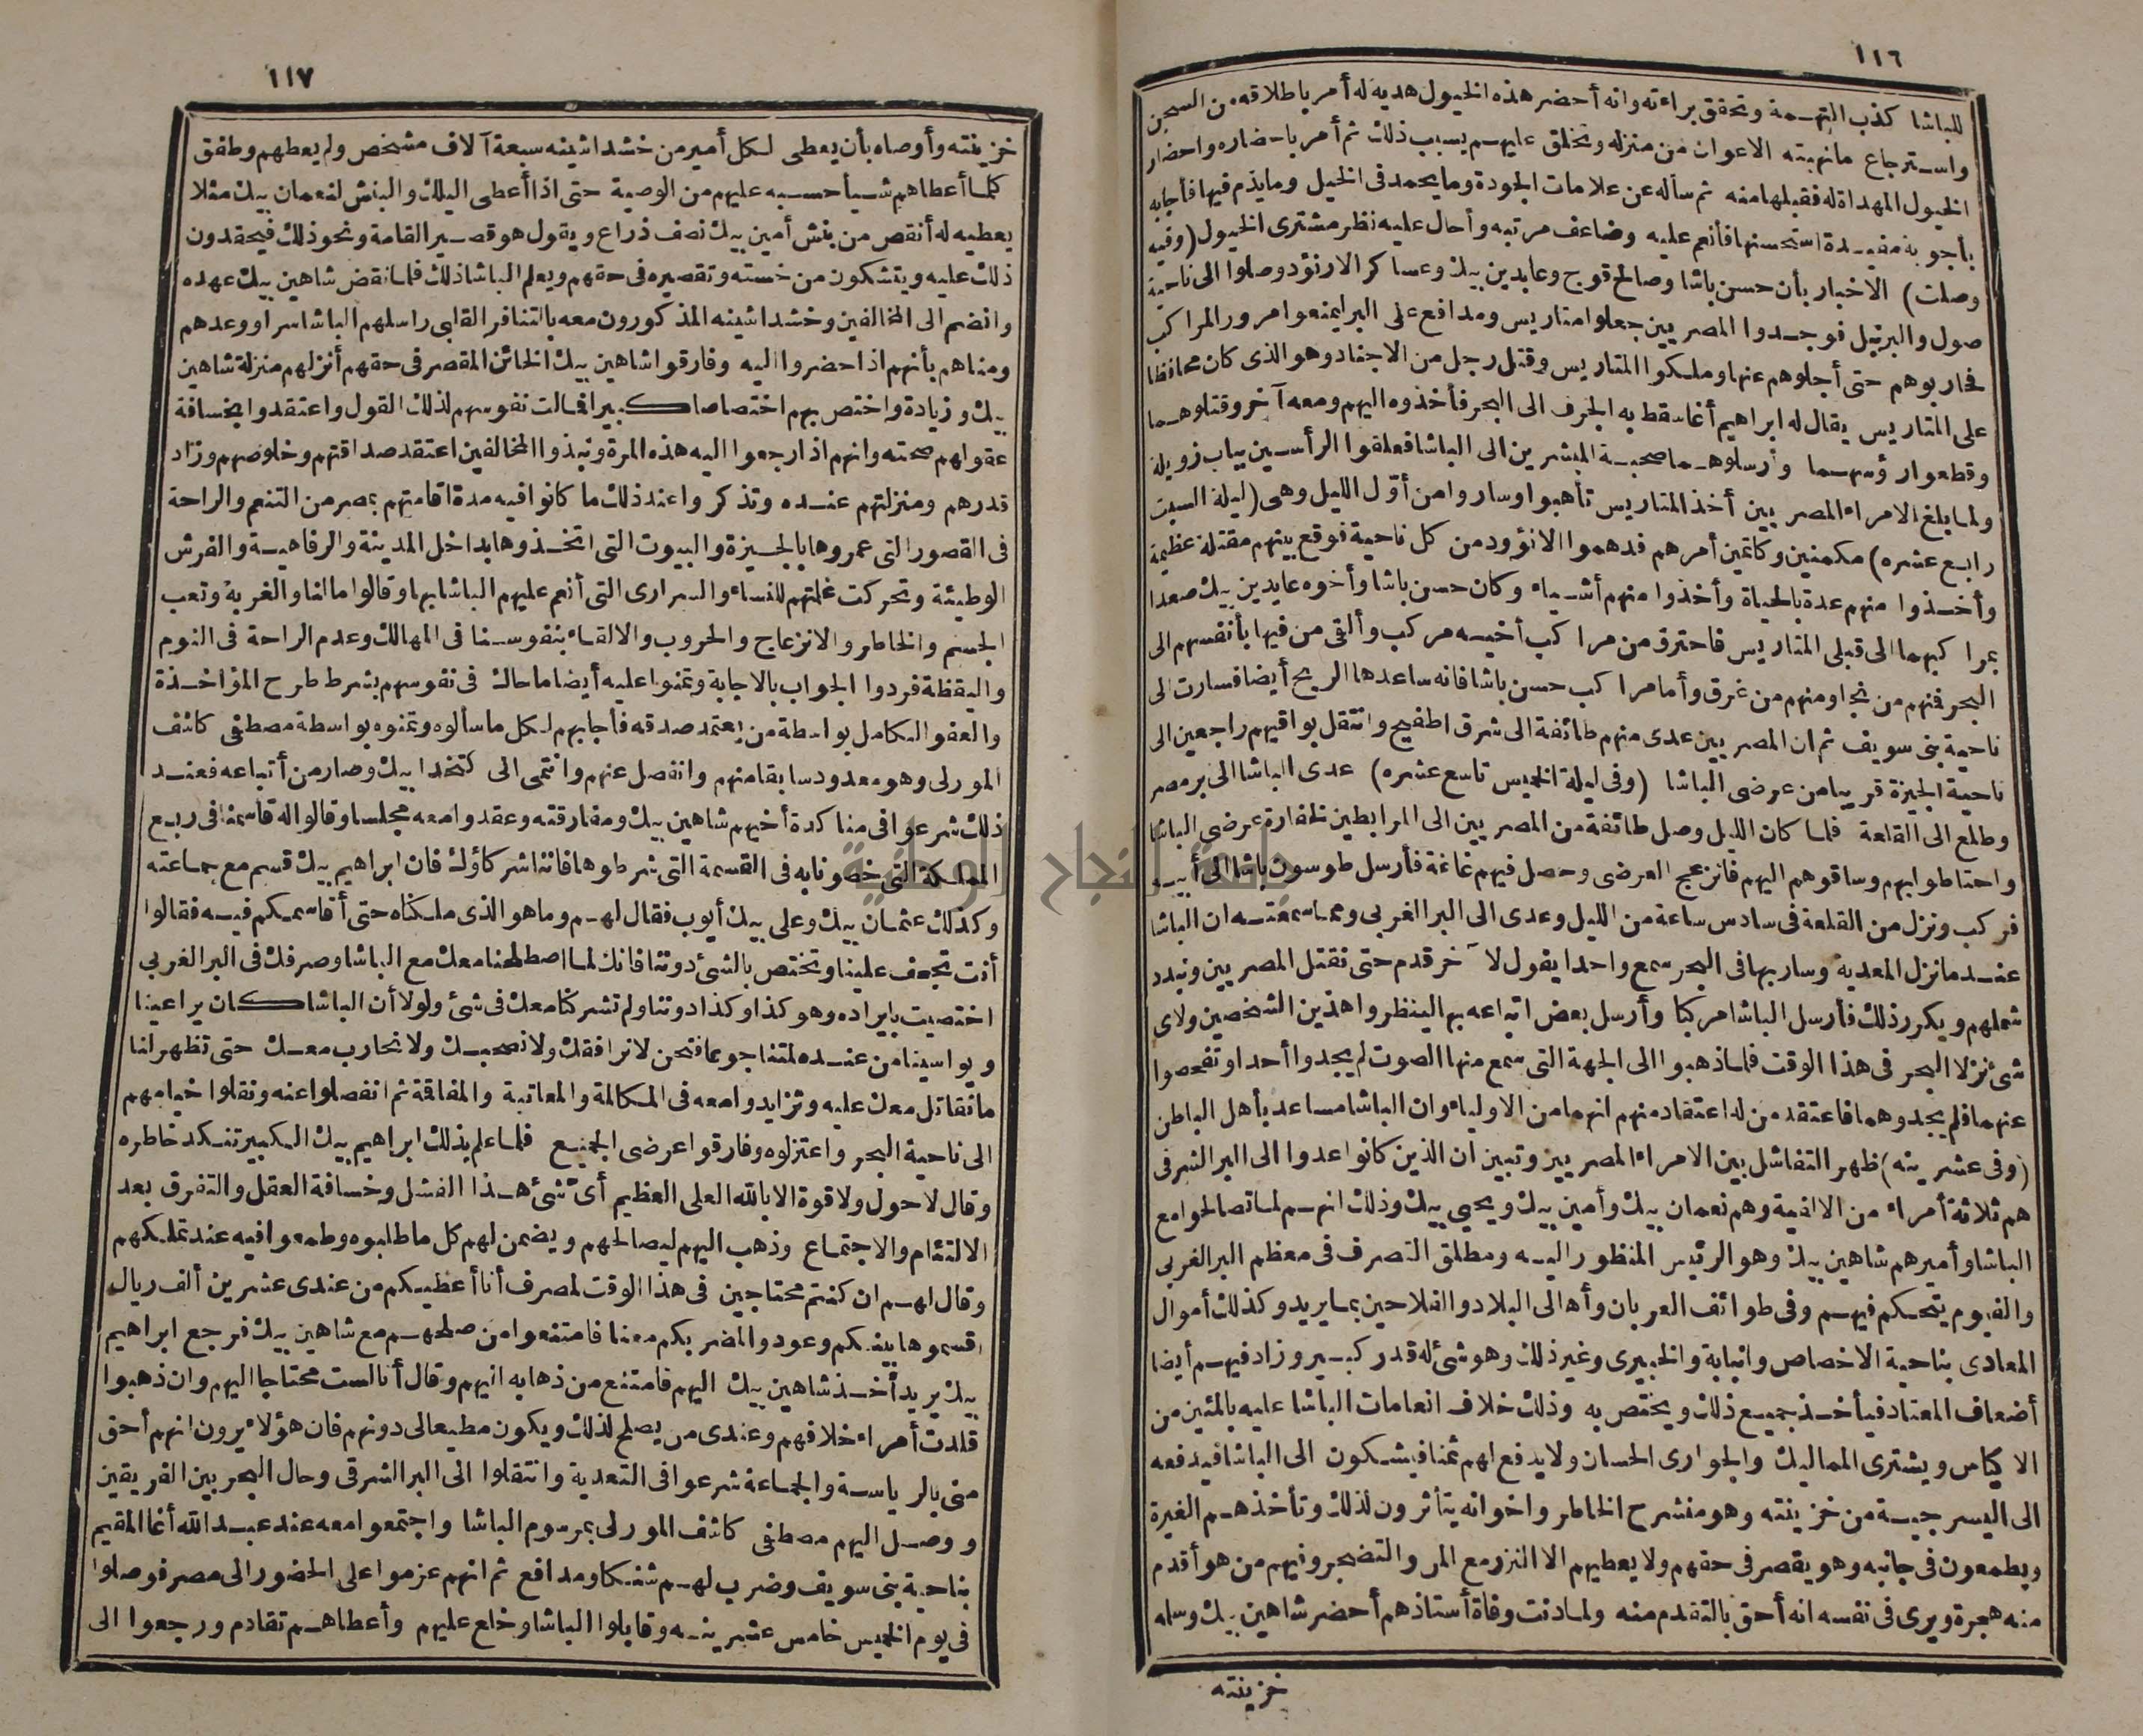 ١١٦
للباشا كذب التهمة وتحقق براءته وانه أحضر هذه الخيول هدية له أمر باطلاقه من السجن
واسترجاع ما نهبته الاعوان من منزله وتخلق عليهم بسبب ذلك ثم أمر باحضاره واحضار
الخيول المهداة له فقبلها منه ثم سأله عن علامات الجودة وما يحمد فى الخيل وما يذم فيها فأجابه
بأجوبة مفيدة استحسنها فأنعم عليه وضاعف مرتبه وأحال عليه نظر مشترى الخيول (وفيه
وصلت) الاخبار بأن حسن باشا وصالح قوج وعابدين بيك وعساكر الارنؤد وصلوا الى ناحية
صول والبرنبل فوجدوا المصريين جعلوا متاريس ومدافع على البر ليمنعوا مرور المراكب
فحاربوهم حتى أجلوهم عنها وملكوا المتاريس وقتل رجل من الاجناد وهو الذى كان محافظا
على المتاريس يقال له ابراهيم أغا سقط به الجرف الى البحر فأخذوه اليهم ومعه آخر وقتلوهما
وقطعوا رؤسهما وأرسلوهما صحبة المبشرين الى الباشا فعلقوا الرأسين بباب زويلة
ولما بلغ الامراء المصريين أخذ المتاريس تأهبوا وساروا من أوّل الليل وهى (ليلة السبت
رابع عشره) مكمنين وكاتمين أمرهم فدهموا الارنؤد من كل ناحية فوقع بينهم مقتلة عظيمة
وأخذوا منهم عدة بالحياة وأخذوا منهم أشياء وكان حسن باشا وأخوه عابدين بيك صعدا
بمراكبهما الى قبلى المتاريس فاحترق من مراكب أخيه مركب وألقى من فيها بأنفسهم الى
البحر فنهم من نجا ومنهم من غرق وأما مراكب حسن باشا فانه ساعدها الريح أيضا فسارت الى
ناحية بنى سويف ثم ان المصريين عدى منهم طائفة الى شرق اطفيح وانتقل بواقيهم راجعين الى
ناحية الجيزة قريبا من عرضى الباشا (وفى ليلة الخميس تاسع عشره) عدى الباشا الى بر مصر
وطلع الى القلعة فلما كان الليل وصل طائفة من المصريين الى المرابطين لخفارة عرضى الباشا
واحتاطوا بهم وساقوهم اليهم فانزعج العرضى وحصل فيهم غاغة فأرسل طوسون باشا الى أبيه
فركب ونزل من القلعة فى سادس ساعة من الليل وعدى الى البر الغربى ومما سمعته ان الباشا
عند ما نزل المعدية وسار بها فى البحر سمع واحدا يقول لآخر قدم حتى نقتل المصريين ونبدد
شملهم ويكرر ذلك فأرسل الباشا مركبا وأرسل بعض اتباعه بها لينظروا هذين الشخصين ولاى
شئ نزلا البحر فى هذا الوقت فلما ذهبوا الى الجهة التى سمع منها الصوت لم يجدوا أحدا وتفحصوا
عنهما فلم يجدوهما فاعتقد من له اعتقاد منهم انهما من الاولياء وان الباشا مساعد بأهل الباطن
(وفى عشرينه) ظهر التفاشل بين الامراء المصريين وتبين ان الذين كانوا عدوا الى البر الشرقى
هم ثلاثة أمراء من الالفية وهم نعمان بيك وأمين بيك ويحيى بيك وذلك انهم لما تصالحوا مع
الباشا وأميرهم شاهين بيك وهو الرئيس المنظور اليه ومطلق التصرف فى معظم البر الغربى
والفيوم يتحكم فيهم وفى طوائف العربان وأهالى البلاد والفلاحين بما يريد وكذلك أموال
المعادى بناحية الاخصاص وانبابة والخبيرى وغير ذلك وهو شئ له قدر كبير وزاد فيهم أيضا
أضعاف المعتاد فيأخذ جميع ذلك ويختص به وذلك خلاف انعامات الباشا عليه بالمئين من
الاكياس ويشترى المماليك والجوارى الحسان ولا يدفع لهم ثمنا فيشكون الى الباشا فيدفعه
الى اليسرجية من خزينته وهو منشرح الخاطر واخوانه يتأثرون لذلك وتأخذهم الغيرة
ويطمعون فى جانبه وهو يقصر فى حقهم ولا يعطيهم الا النزر مع المر والتضجر وفيهم من هو أقدم
منه هجرة ويرى فى نفسه انه أحق بالتقدم منه ولما دنت وفاة أستاذهم أحضر شاهين بيك وسلمه
خزينته
١١٧
خزينته وأوصاه بأن يعطى لكل أمير من خشداشينه سبعة آلاف مشخص ولم يعطهم وطفق
كلما أعطاهم شيأ حسبه عليهم من الوصية حتى اذا أعطى اليلك والبنش لنعمان بيك مثلا
يعطيه له أنقص من بنش أمين بيك نصف ذراع ويقول هو قصير القامة ونحو ذلك فيحقدون
ذلك عليه ويتشكون من خسته وتقصيره فى حقهم ويعلم الباشا ذلك فلما نقض شاهين بيك عهده
وانضم الى المخالفين وخشداشينه المذكورون معه بالتنافر القلبى راسلهم الباشا سرا ووعدهم
ومناهم بأنهم اذا حضروا اليه وفارقوا شاهين بيك الخائن المقصر فى حقهم أنزلهم منزلة شاهين
بيك وزيادة واختص بهم اختصاصا كبيرا فمالت نفوسهم لذلك القول واعتقدوا بخسافة
عقولهم صحته وانهم اذا رجعوا اليه هذه المرة ونبذوا المخالفين اعتقد صداقتهم وخلوصهم وزاد
قدرهم ومنزلتهم عنده وتذكروا عند ذلك ما كانوا فيه مدة اقامتهم بمصر من التنعم والراحة
فى القصور التى عمروها بالجيزة والبيوت التى اتخذوها بداخل المدينة والرفاهية والفرش
الوطيئة وتحركت غلمتهم للنساء والسرارى التى أنعم عليهم الباشا بها وقالوا مالنا والغربة وتعب
الجسم والخاطر والانزعاج والحروب والالقاء بنفوسنا فى المهالك وعدم الراحة فى النوم
واليقظة فردوا الجواب بالاجابة وتمنوا عليه أيضا ما حاك فى نفوسهم بشرط طرح المؤاخذة
والعفو الكامل بواسطة من يعتمد صدقه فأجابهم لكل ما سألوه وتمنوه بواسطة مصطفى كاشف
المورلى وهو معدود سابقا منهم وانفصل عنهم وانتمى الى كتخدا بيك وصار من أتباعه فعند
ذلك شرعوا فى مناكدة أخيهم شاهين بيك ومفارقته وعقدوا معه مجلسا وقالوا له قاسمنا فى ربع
المملكة التى خصونا به فى القسمة التى شرطوها فاننا شركاؤك فان ابراهيم بيك قسم مع جماعته
وكذلك عثمان بيك وعلى بيك أيوب فقال لهم وما هو الذى ملكناه حتى أقاسمكم فيه فقالوا
أنت تجحف علينا وتختص بالشئ دوننا فانك لما اصطلحنا معك مع الباشا وصرفك فى البر الغربى
اختصيت بايراده وهو كذا وكذا دوننا ولم تشركنا معك فى شئ ولولا أن الباشا كان يراعينا
ويواسينا من عنده لمتنا جوعا فنحن لا نرافقك ولا نصحبك ولا نحارب معك حتى تظهر لنا
ما نقاتل معك عليه وتزايدوا معه فى المكالمة والمعاتبة والمفاقمة ثم انفصلوا عنه ونقلوا خيامهم
الى ناحية البحر واعتزلوه وفارقوا عرضى الجميع فلما علم بذلك ابراهيم بيك الكبير تنكد خاطره
وقال لا حول ولا قوة الا بالله العلى العظيم أى شئ هذا الفشل وخسافة العقل والتفرق بعد
الالتئام والاجتماع وذهب اليهم ليصالحهم ويضمن لهم كل ما طلبوه وطمعوا فيه عند تملكهم
وقال لهم ان كنتم محتاجين فى هذا الوقت لمصرف أنا أعطيكم من عندى عشرين ألف ريال
اقسموها بينكم وعودوا لمضربكم معنا فامتنعوا من صلحهم مع شاهين بيك فرجع ابراهيم
بيك يريد أخذ شاهين بيك اليهم فامتنع من ذهابه اليهم وقال أنا لست محتاجا اليهم وان ذهبوا
قلدت أمراء خلافهم وعندى من يصلح لذلك ويكون مطيعا لى دونهم فان هؤلاء يرون انهم أحق
منى بالرياسة والجماعة شرعوا فى التعدية وانتقلوا الى البر الشرقى وحال البحر بين الفريقين
ووصل اليهم مصطفى كاشف المورلى بمرسوم الباشا واجتمعوا معه عند عبد الله أغا المقيم
بناحية بنى سويف وضرب لهم شنكا ومدافع ثم انهم عزموا على الحضور الى مصر فوصلوا
فى يوم الخميس خامس عشرينه وقابلوا الباشا وخلع عليهم وأعطاهم تقادم ورجعوا الى
جامعة النجاح الوطنية